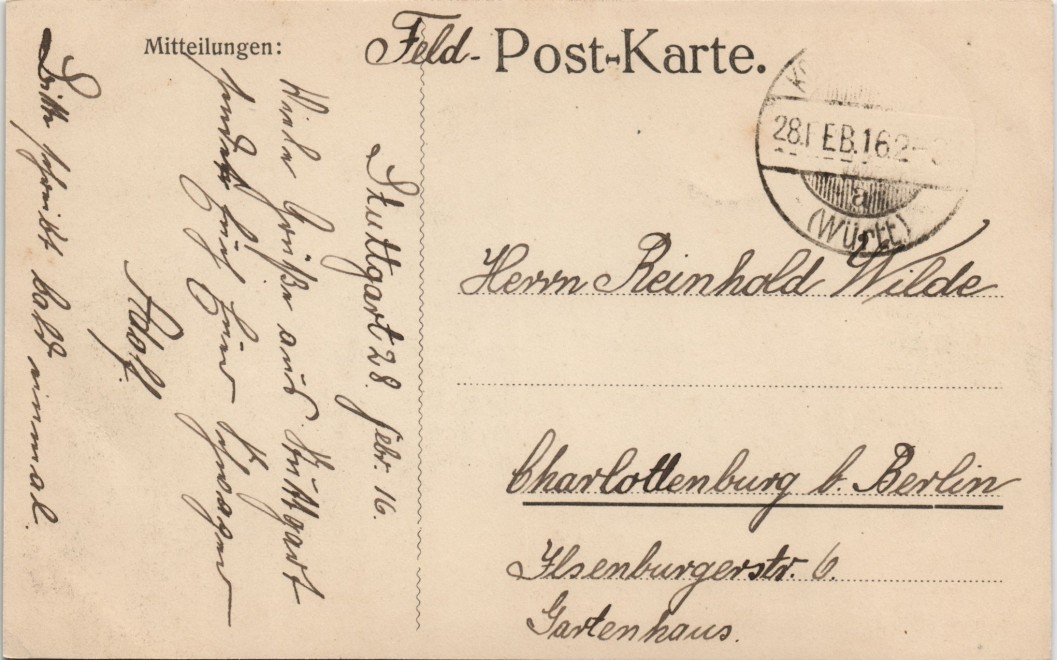 Mitteilungen:
Feld-Post-Karte.
28.FEB.16.2-3
a
(Württ)
Stuttgart 28. Febr. 16.
Viele Grüße aus Stuttgart
sendet Euch Euer Schwager
Adolf.
Bitte schreibt bald einmal.
Herrn Reinhold Wilde
Charlottenburg b. Berlin
Ilsenburgerstr. 6.
Gartenhaus.